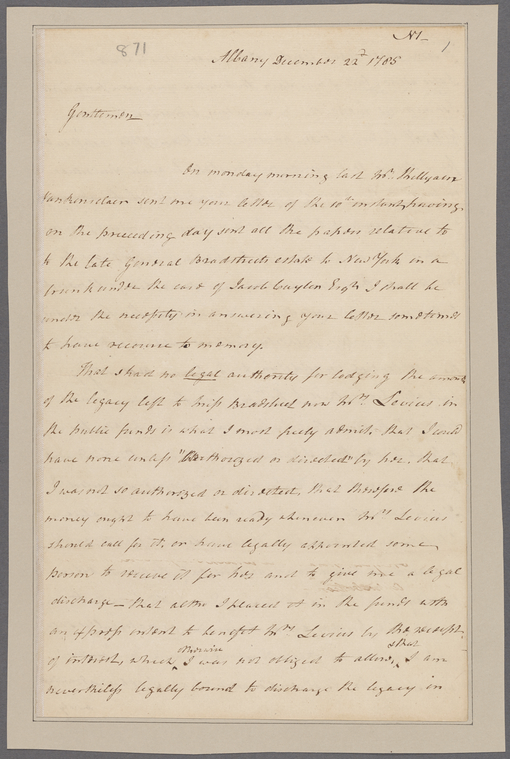 871
N1-
1
Albany December 22d 1785
Gentlemen
On monday morning last Mr. Phillip
VanRenselaer sent me your letter of the 10th instant, having
on the preceeding day sent all the papers relative to
to the late General Bradstreets estate to New York in a
trunk under the care of Jacob Cuyler Esqr. I shall be
under the necessity in answering your letter sometimes
to have recourse to memory.
That I had no legal authority for lodging the amount
of the legacy left to miss Bradstreet now Mrs. Levius in
the public funds is what I most freely admit, that I could
have none unless "authorized or directed" by her. that
I was not so authorized or directed, that therefore the
money ought to have been ready whenever Mrs. Levius
should call for it, or have legally appointed some
person to receive it for her and to give me a legal
discharge – that altho I placed it in the funds with
an express intent to benefit Mrs. Levius by the receipt
of interest, which otherwise I was not obliged to allow, that I am
nevertheless legally bound to discharge the legacy in